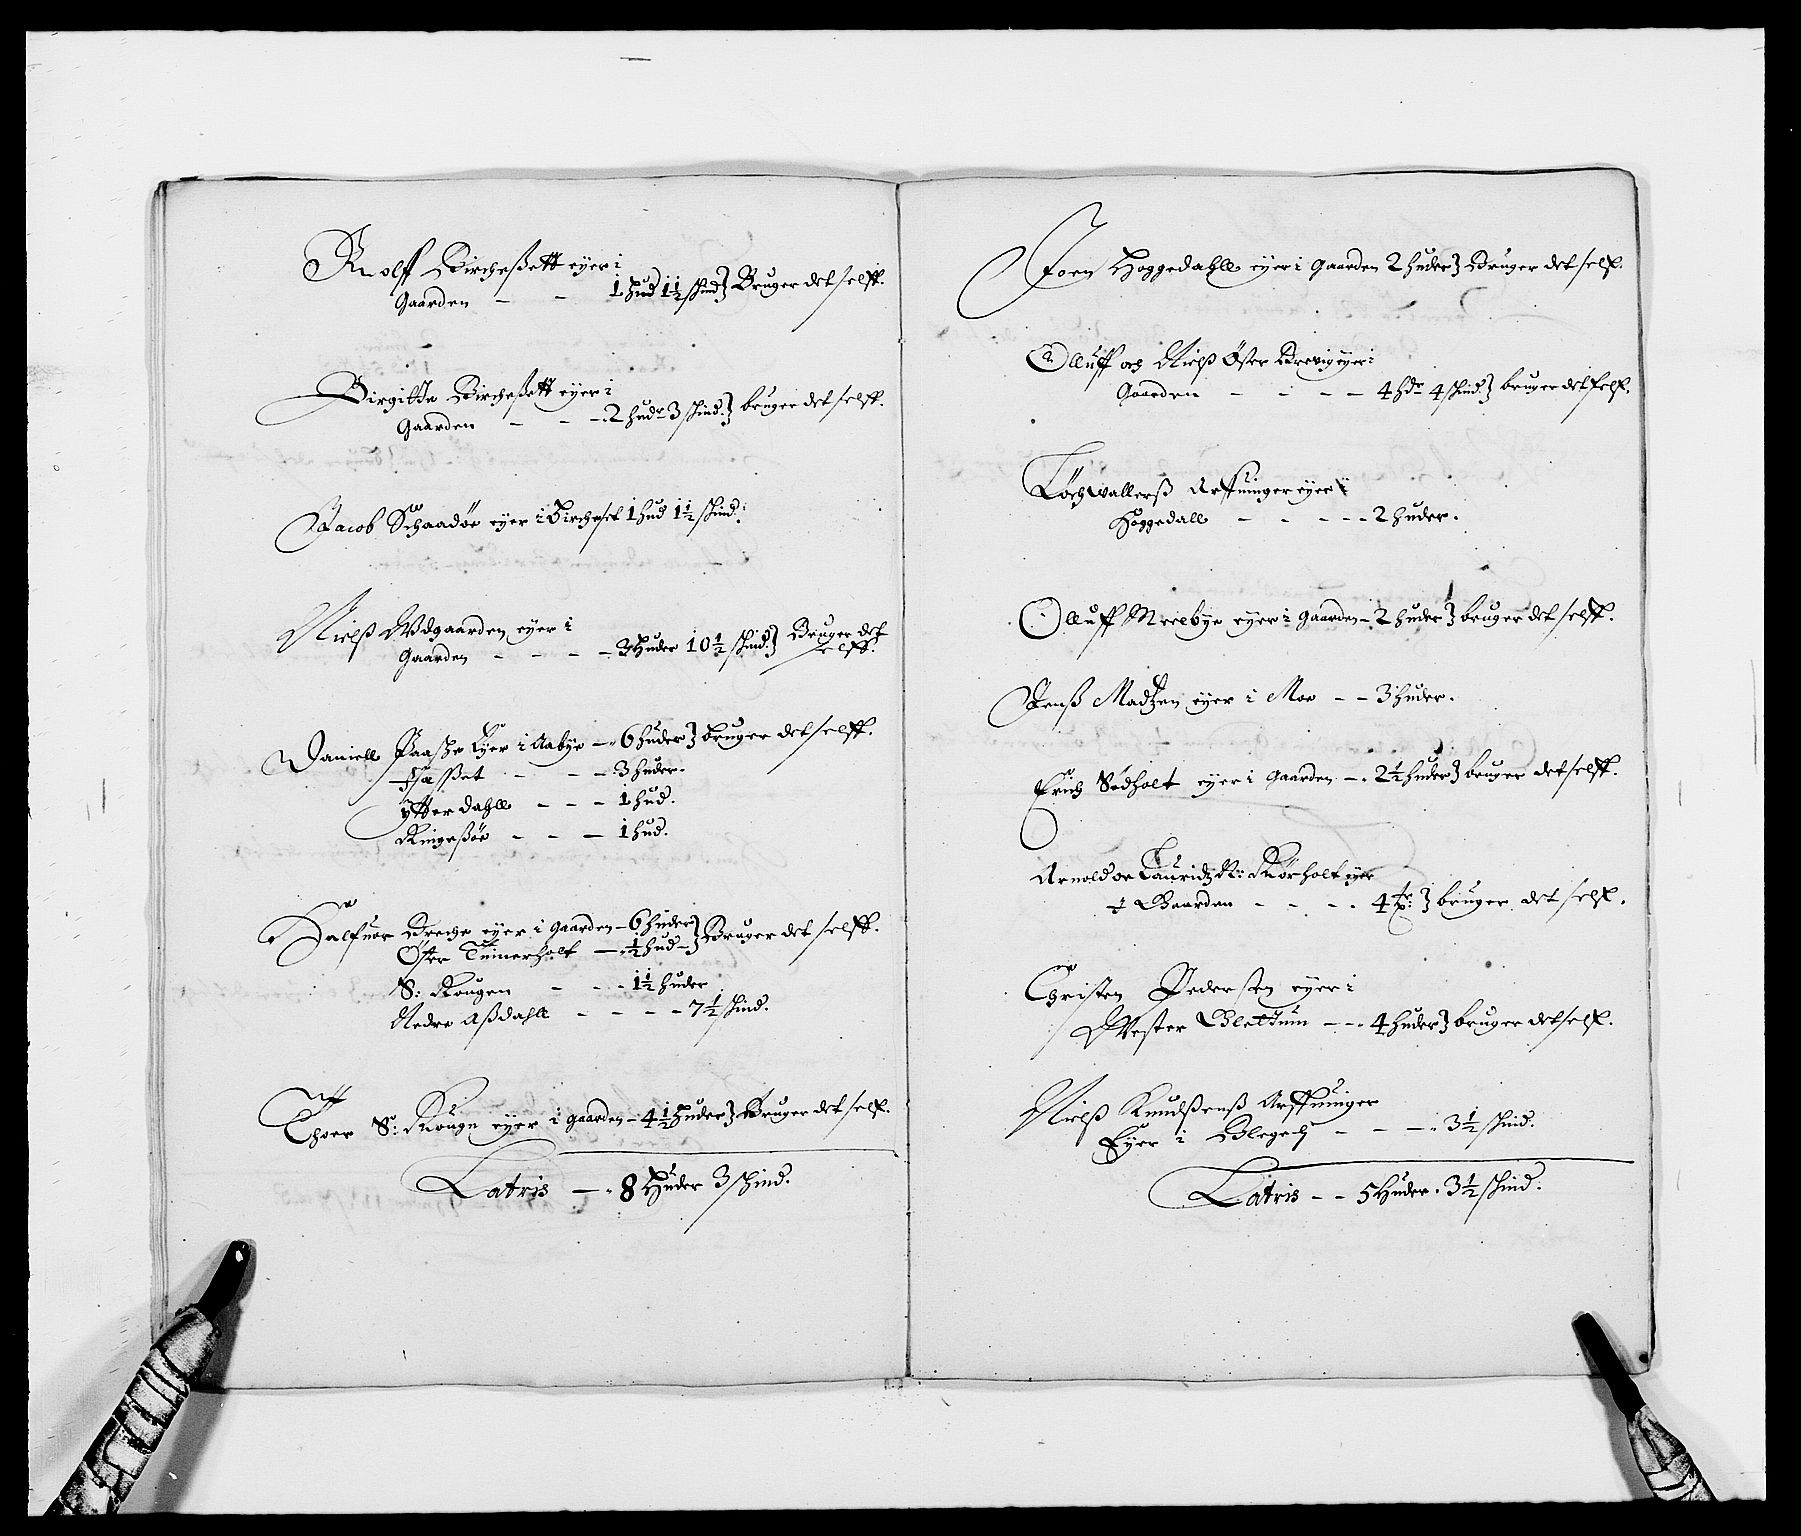 Rolff Bircheßett eyer i
Gaarden - - 1 hud 1½ skind } Bruger det selff.
Birgitte Bircheßett eyer i
Gaarden - - 2 hudr 3 skind } bruger det selff.
Jacob Schaadöe eyer i Bircheset 1 hud 1½ skind.
Nielß Wdgaarden eyer i
Gaarden - - - 3 Huder 10½ skind } Bruger det
selff.
Daniell Paaske Eyer i Aabye - 6 huder } bruger det selff.
Haßet - - - 3 huder.
ytter dahll - - - 1 hud.
Ringeßöe - - - 1 hud.
Halfuor Breche eyer i Gaarden - 6 huder } Bruger det selff.
Öster Timerholt - ½ hud -
S: Rougen - - - 1½ huder
Nedre Aßdahll - - - - 7½ skind.
Thoer S: Rougn eyer i gaarden - 4½ Huder } Bruger det self.
Latris - 8 Huder 3 skind.
Joen Hoggedahll eyer i Gaarden 2 huder } Bruger det self.
Olluff och Nielß Öster Krevig eyer i
Gaarden - - - - 4 hdr 4 skind } bruger det self.
Löchwallerß Arffuinger eyer i
Hoggedall - - - - 2 huder.
Olluff Meelbye eyer i Gaarden - 2 huder } bruger det selff.
Jenß Madtzen eyer i Moe - - 3 huder.
Erich Södholt eyer i Gaarden - 2½ huder } bruger det selff.
Arnold oc Lauridz R: Rörholt eyer
i Gaarden - - - 4 } bruger det self.
Christen Pedersen eyer i
Wester Glettum - - 4 huder } bruger det self.
Nielß Knudßenß Arffuinger
Eyer i Blegech - - - 3½ skind.
Latris - - 5 Huder. 3½ skind.